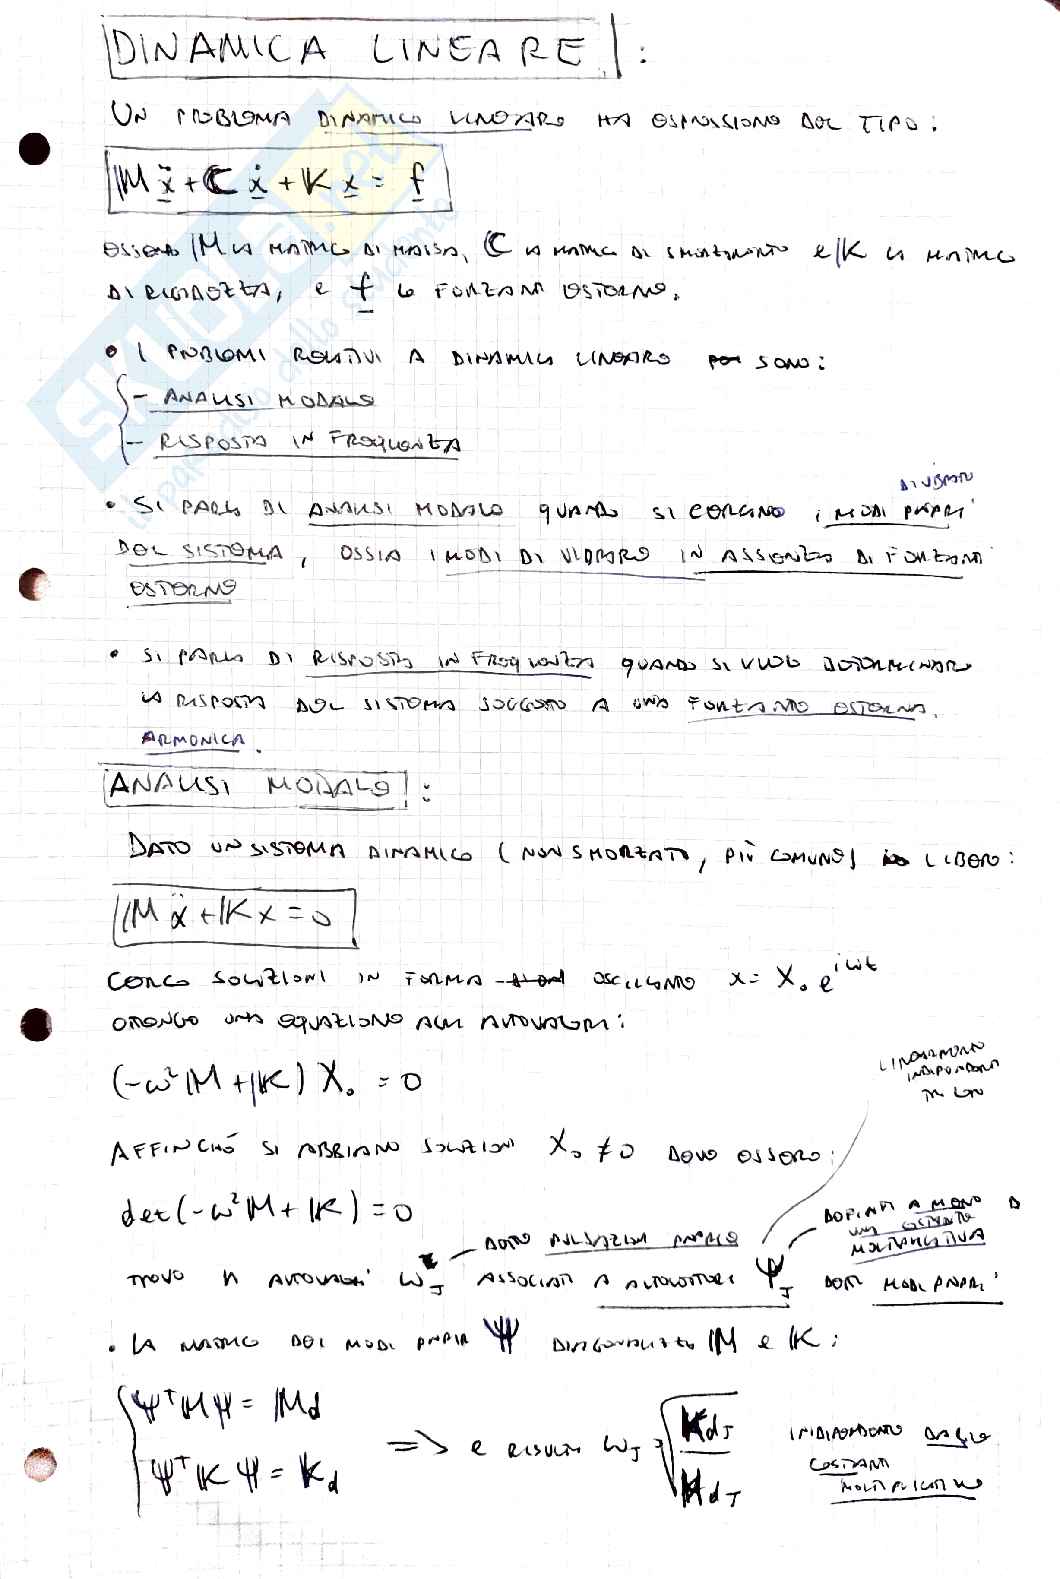 DINAMICA LINEARE :
UN PROBLEMA DINAMICO LINEARE HA ESPRESSIONE DEL TIPO :
𝕄 ẍ + ℂ ẋ + 𝕂 x = f
ESSENDO 𝕄 LA MATRICE DI MASSA, ℂ LA MATRICE DI SMORZAMENTO e 𝕂 LA MATRICE
DI RIGIDEZZA, E f LE FORZANTI ESTERNE.
• I PROBLEMI RELATIVI A DINAMICA LINEARE SONO :
- ANALISI MODALE
- RISPOSTA IN FREQUENZA
DI VIBRARE
• SI PARLA DI ANALISI MODALE QUANDO SI CERCANO I MODI PROPRI
DEL SISTEMA, OSSIA I MODI DI VIBRARE IN ASSENZA DI FORZANTI
ESTERNE
• SI PARLA DI RISPOSTA IN FREQUENZA QUANDO SI VUOLE DETERMINARE
LA RISPOSTA DEL SISTEMA SOGGETTO A UNA FORZANTE ESTERNA
ARMONICA.
ANALISI MODALE :
DATO UN SISTEMA DINAMICO (NON SMORZATO, PIÙ COMUNE) LIBERO :
𝕄 ẍ + 𝕂 x = 0
CERCO SOLUZIONI IN FORMA OSCILLANTE x = X₀ e^{iωt}
OTTENGO UNA EQUAZIONE AGLI AUTOVALORI :
(-ω² 𝕄 + 𝕂) X₀ = 0
LINEARMENTE
INDIPENDENTI
TRA LORO
AFFINCHÉ SI ABBIANO SOLUZIONI X₀ ≠ 0 DEVE ESSERE :
det(-ω² 𝕄 + 𝕂) = 0
DETTE PULSAZIONI PROPRIE
DEFINITI A MENO DI
UNA COSTANTE
MOLTIPLICATIVA
TROVO N AUTOVALORI ω_J ASSOCIATI A AUTOVETTORI Ψ_J DETTI MODI PROPRI
• LA MATRICE DEI MODI PROPRI Ψ DIAGONALIZZA 𝕄 e 𝕂 :
Ψ^T 𝕄 Ψ = 𝕄d
Ψ^T 𝕂 Ψ = 𝕂d
=> E RISULTA ω_J = √(𝕂d_J / 𝕄d_J) INDIPENDENTE DALLE
COSTANTI
MOLTIPLICATIVE
SKUOLA.net
il paradiso dello studente